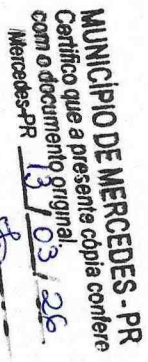 MUNICÍPIO DE MERCEDES - PR
Certifico que a presente cópia confere
com o documento original.
Mercedes-PR 13 / 03 / 26